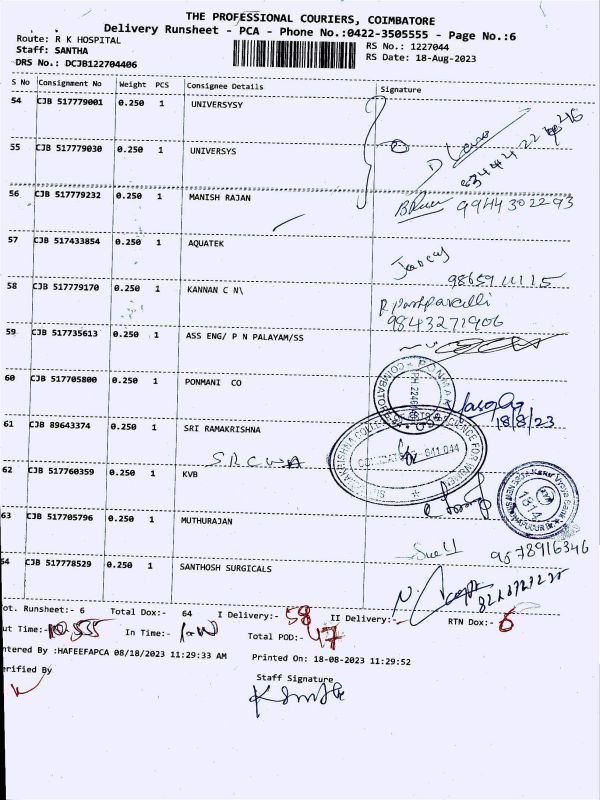 THE PROFESSIONAL COURIERS, COIMBATORE
Delivery Runsheet - PCA - Phone No.:0422-3505555 - Page No.:6
Route: R K HOSPITAL
Staff: SANTHA
DRS No.: DCJB122704406
RS No.: 1227044
RS Date: 18-Aug-2023
S No Consignment No Weight PCS Consignee Details Signature
54 CJB 517779001 0.250 1 UNIVERSYSY
55 CJB 517779030 0.250 1 UNIVERSYS
56 CJB 517779232 0.250 1 MANISH RAJAN 9944302293
57 CJB 517433854 0.250 1 AQUATEK
9865911115
58 CJB 517779170 0.250 1 KANNAN C N\
9843271906
59 CJB 517735613 0.250 1 ASS ENG/ P N PALAYAM/SS
60 CJB 517705800 0.250 1 PONMANI CO
18/8/23
61 CJB 89643374 0.250 1 SRI RAMAKRISHNA
S.R.C.W.A
641 044
62 CJB 517760359 0.250 1 KVB
1814
63 CJB 517705796 0.250 1 MUTHURAJAN
9578916346
54 CJB 517778529 0.250 1 SANTHOSH SURGICALS
ot. Runsheet:- 6 Total Dox:- 64 I Delivery:- 58 II Delivery:- RTN Dox:- 6
ut Time:- In Time:- Total POD:- 47
ntered By :HAFEEFAPCA 08/18/2023 11:29:33 AM Printed On: 18-08-2023 11:29:52
erified By
Staff Signature